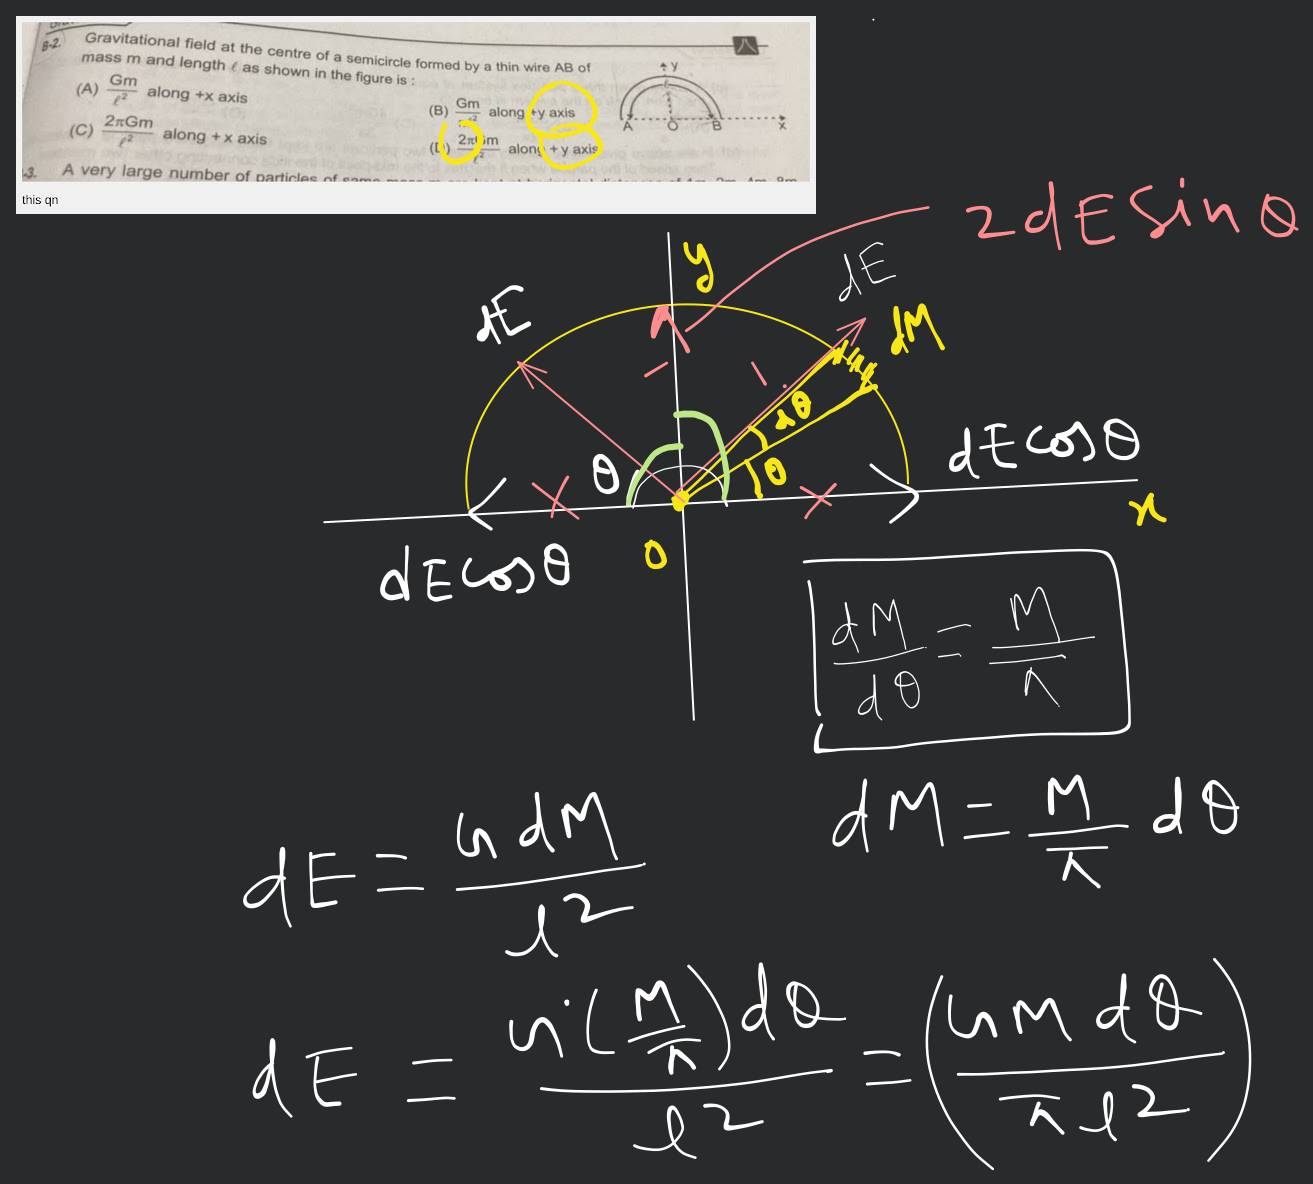 B-2. Gravitational field at the centre of a semicircle formed by a thin wire AB of
mass m and length ℓ as shown in the figure is :
(A) Gm/ℓ² along +x axis
(B) Gm/πℓ² along +y axis
(C) 2πGm/ℓ² along + x axis
(D) 2πGm/ℓ² along + y axis
y
A O B x
-3. A very large number of particles of same mass m are
this qn
2dE sin θ
y
dE
dE
dM
dθ
θ
θ
dE cos θ
x
O
dE cos θ
dM/dθ = M/π
dE = G dM/l²
dM = M/π dθ
dE = G(M/π)dθ/l² = (GM dθ/π l²)